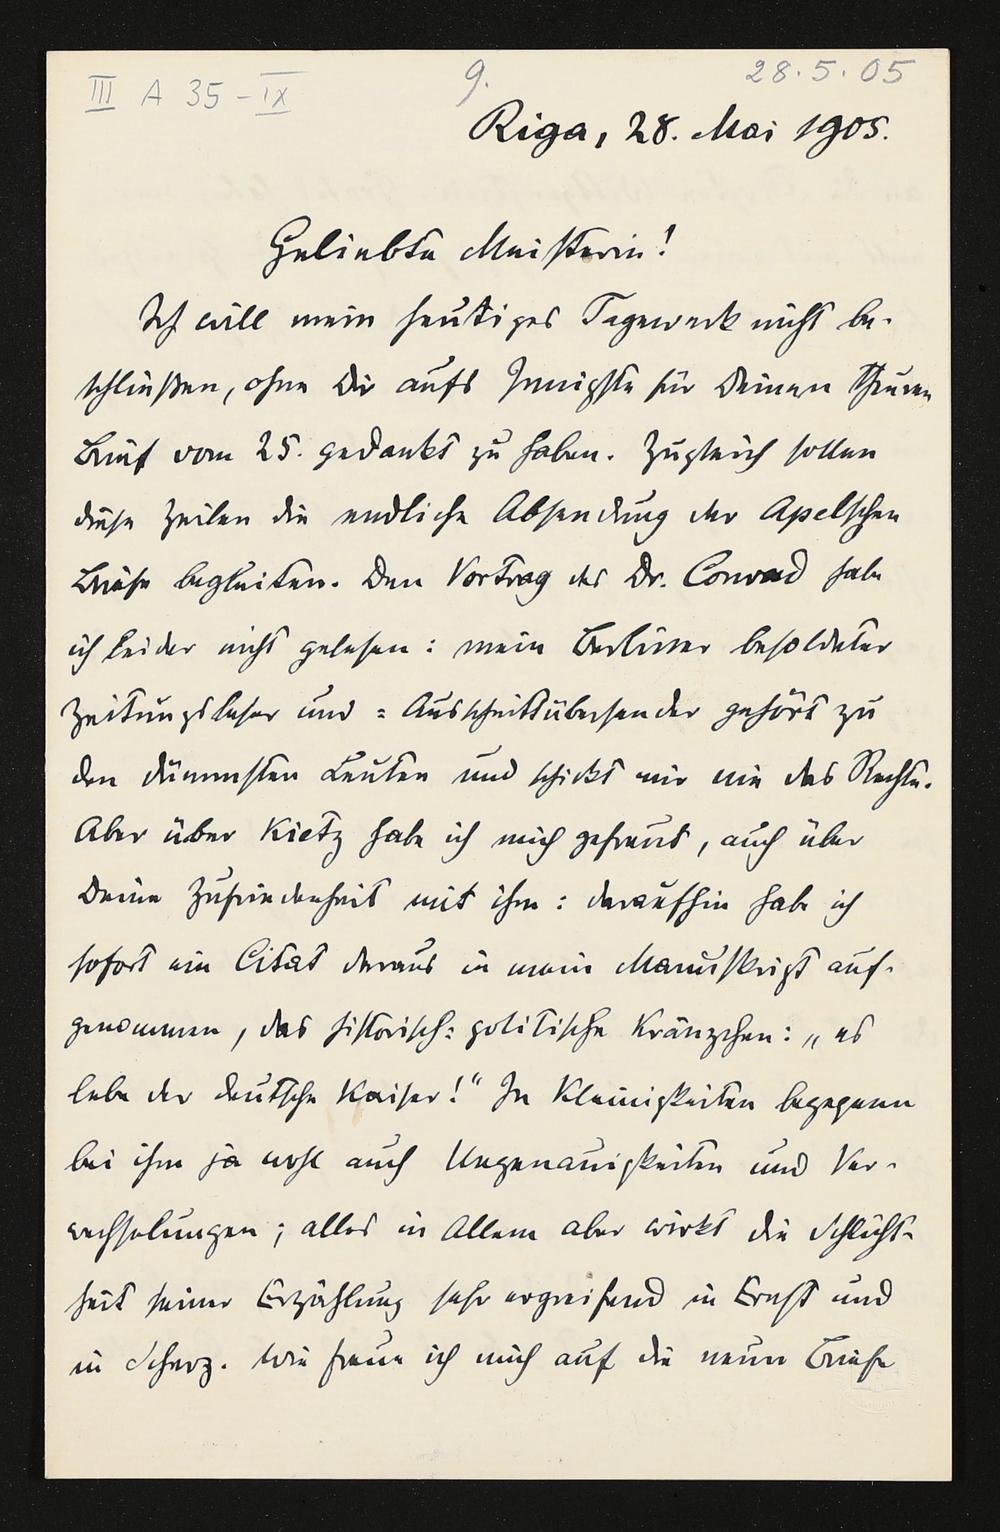 III A 35-IX
9.
28.5.05
Riga, 28. Mai 1905.
Geliebte Meisterin!
Ich will mein heutiges Tagewerk nicht be-
schließen, ohne Dir aufs Innigste für Deinen theuren
Brief vom 25. gedankt zu haben. Zugleich sollen
diese Zeilen die endliche Absendung der Apelschen
Briefe begleiten. Den Vortrag des Dr. Conrad habe
ich leider nicht gelesen: mein Berliner besoldeter
Zeitungsleser und = Ausschnittübersender gehört zu
den dümmsten Leuten und schickt mir nie das Rechte.
Aber über Kietz habe ich mich gefreut, auch über
Deine Zufriedenheit mit ihm: daraufhin habe ich
sofort ein Citat daraus in mein Manuskript auf-
genommen, das historisch=politische Kränzchen: „es
lebe der deutsche Kaiser!" In Kleinigkeiten begegnen
bei ihm ja wohl auch Ungenauigkeiten und Ver-
wechselungen; alles in Allem aber wirkt die Schlicht-
heit seiner Erzählung sehr ergreifend in Ernst und
in Scherz. Wie freue ich mich auf die neuen Briefe